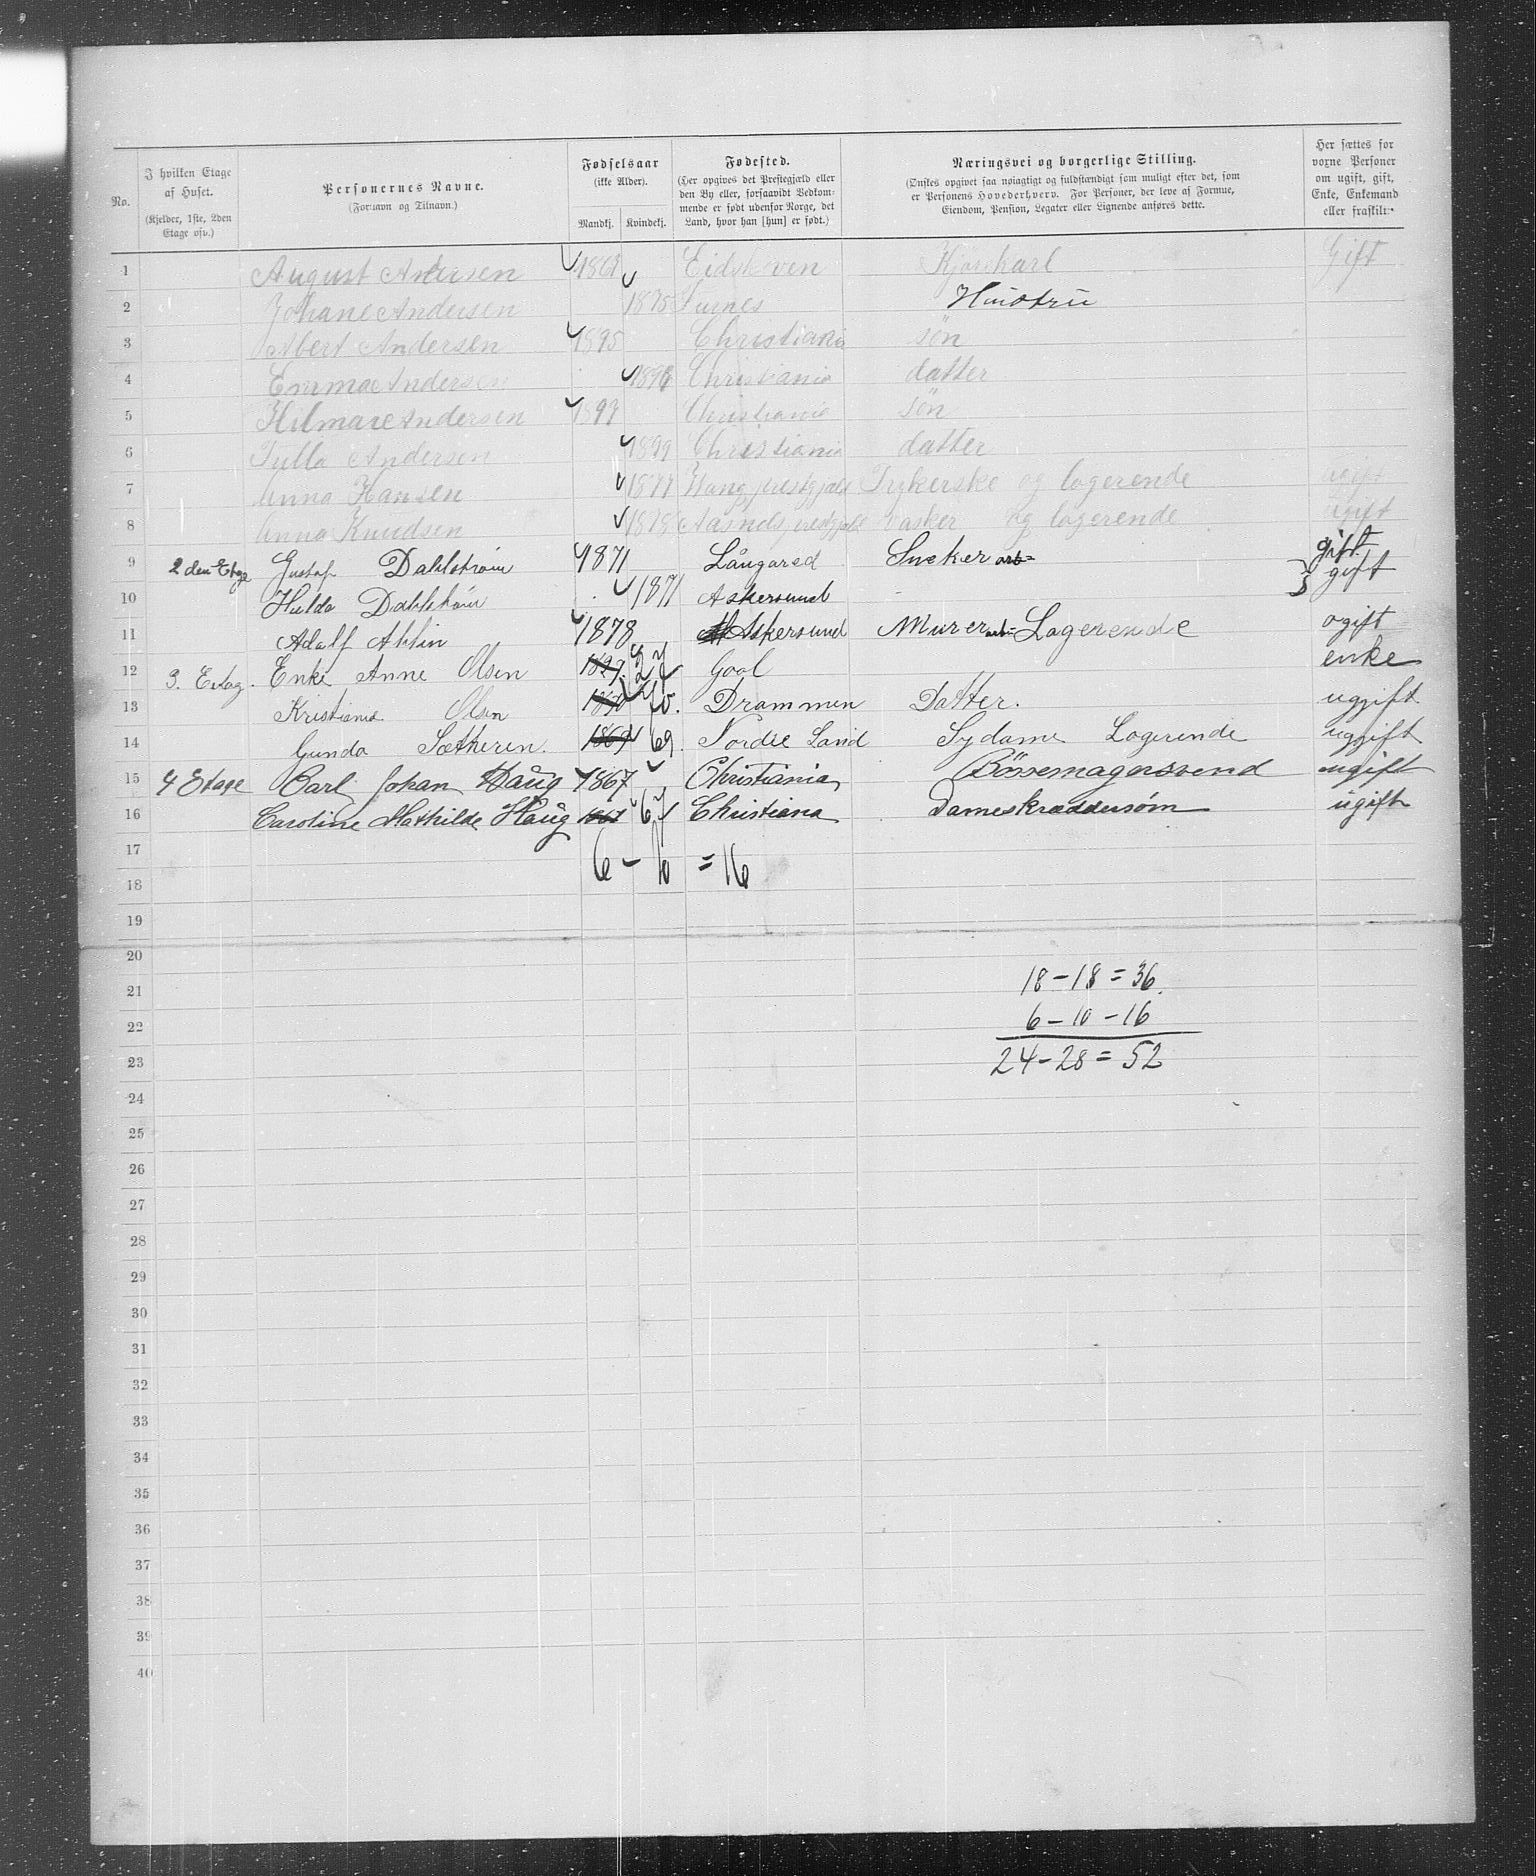 No.
I hvilken Etage af Huset. (Kjelder, 1ste, 2den Etage osv.)
Personernes Navne. (Fornavn og Tilnavn.)
Fødselsaar (ikke Alder). Mandkj. Kvindekj.
Fødested. (Her opgives det Prestegjæld eller den By eller, forsaavidt Vedkommende er født udenfor Norge, det Land, hvor han [hun] er født.)
Næringsvei og borgerlige Stilling. (Ønskes opgivet saa nøiagtigt og fuldstændigt som muligt efter det, som er Personens Hovederhverv. For Personer, der leve af Formue, Eiendom, Pension, Legater eller Lignende anføres dette.)
Her sættes for voxne Personer om ugift, gift, Enke, Enkemand eller fraskilt.
1 August Andersen Gift
2 Johane Andersen 1875 Hustru
3 Albert Andersen 1895 Christiania søn
4 Emma Andersen 1896 Christiania datter
5 Hilmar Andersen 1897 Christiania søn
6 Andersen 1899 Christiania datter
7 Anna Hansen 1877 og logerende ugift
8 Anna Knudsen vasker og logerende ugift
9 2den Etage Gustaf Dahlstrøm 1871 Långared Sneker arb= gift
10 Hulda Dahlstrøm 1871 Askersund gift
11 Adalf 1878 Askersund Murer arb= Logerende ogift
12 3. Etag. Enke Anne Olsen 27 Gool enke
13 Kristiana Olsen 1870 70. Drammen Datter. ugjift
14 Gunda Sætheren. 1869 69. Nordre Land Sydame Logerende ugjift
15 4 Etage Carl Johan Haug 1867 Christiania Bössemagersvend ugift
16 Caroline Mathilde Haug 67 Christiana Dameskræddersøm ugift
17 6 - 10 = 16
18
19
20
21 18 - 18 = 36.
22 6 - 10 - 16
23 24 - 28 = 52
24
25
26
27
28
29
30
31
32
33
34
35
36
37
38
39
40